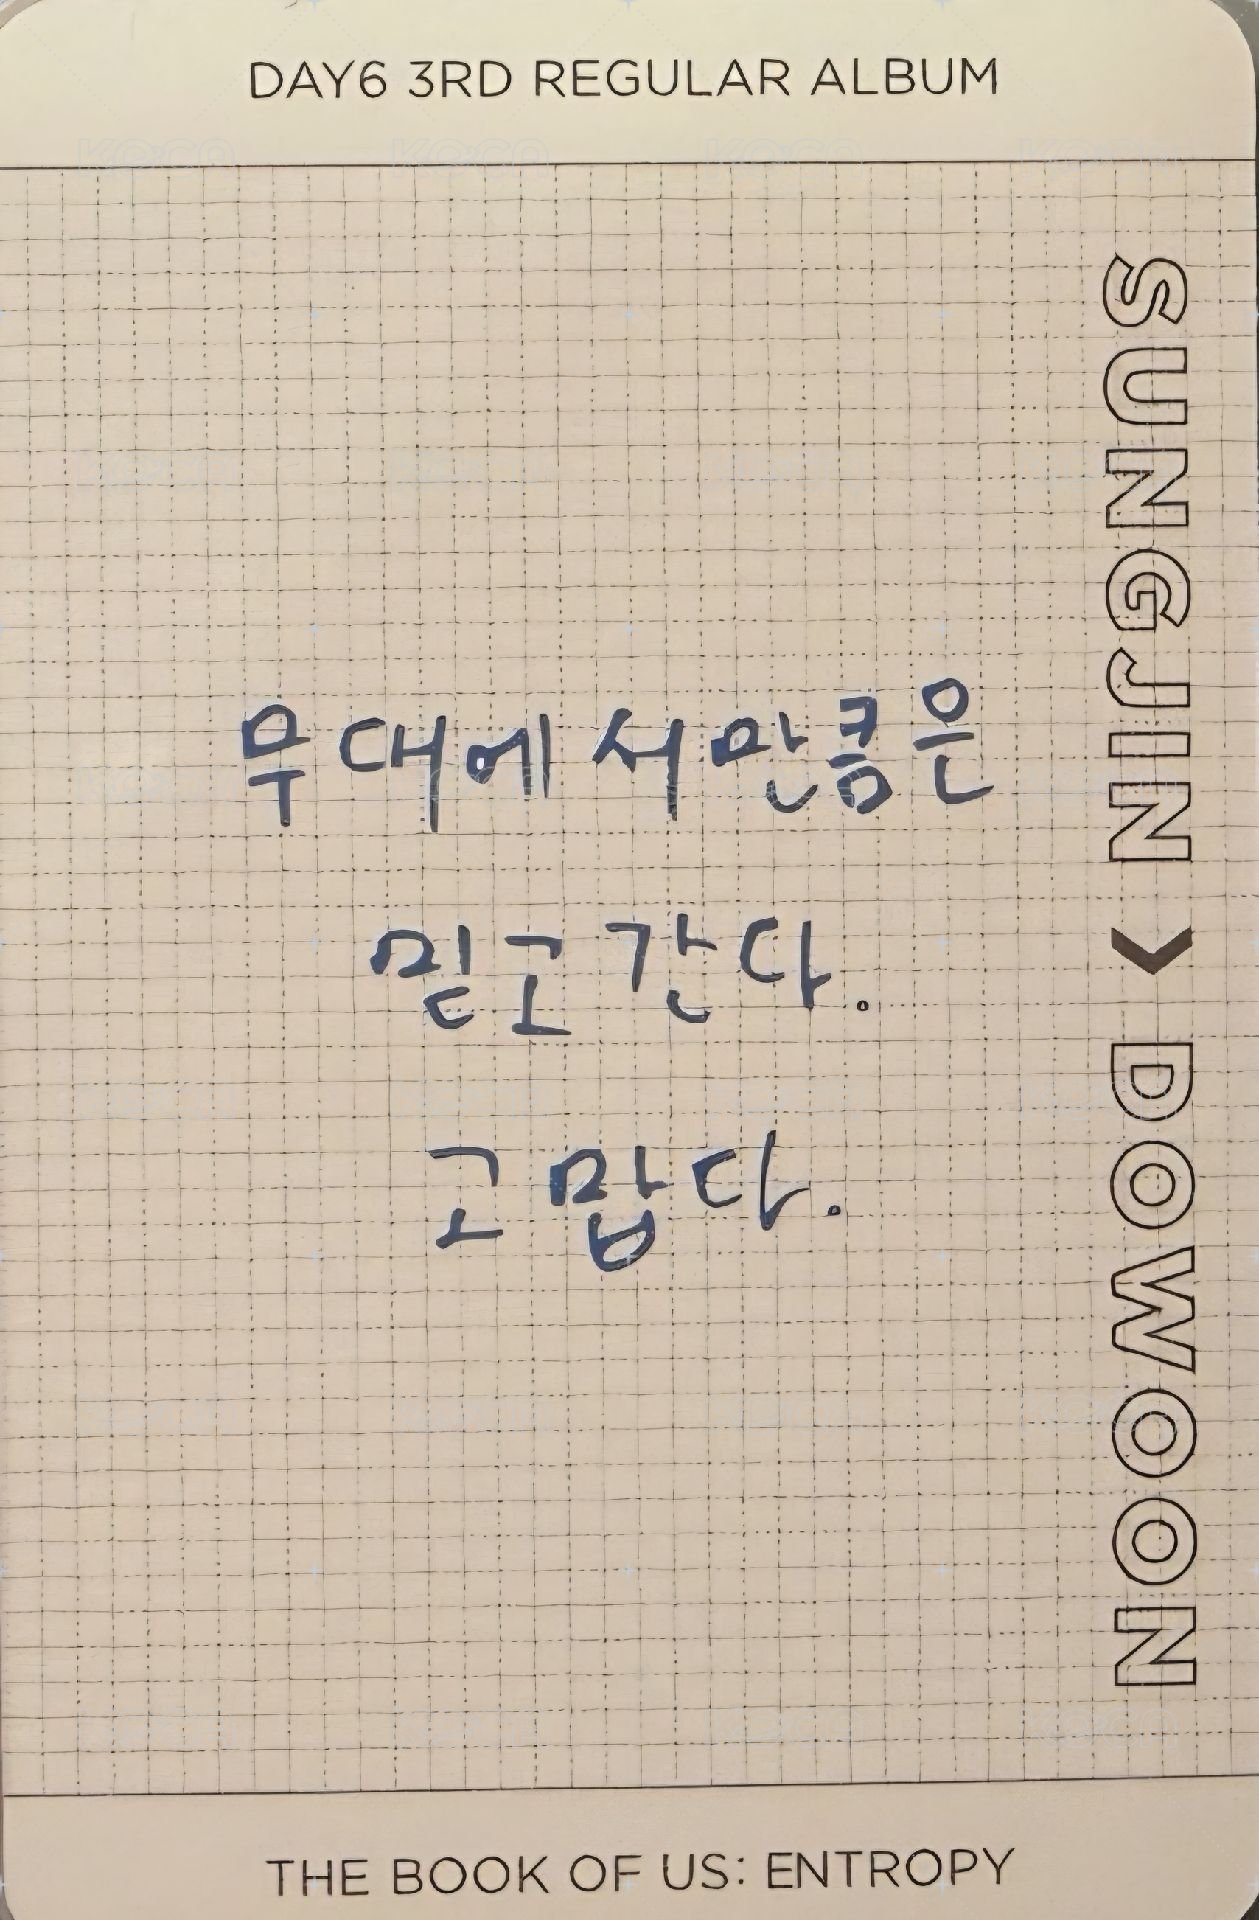 DAY6 3RD REGULAR ALBUM
SUNGJIN > DOWOON
무대에서만큼은
믿고 간다.
고맙다.
THE BOOK OF US: ENTROPY